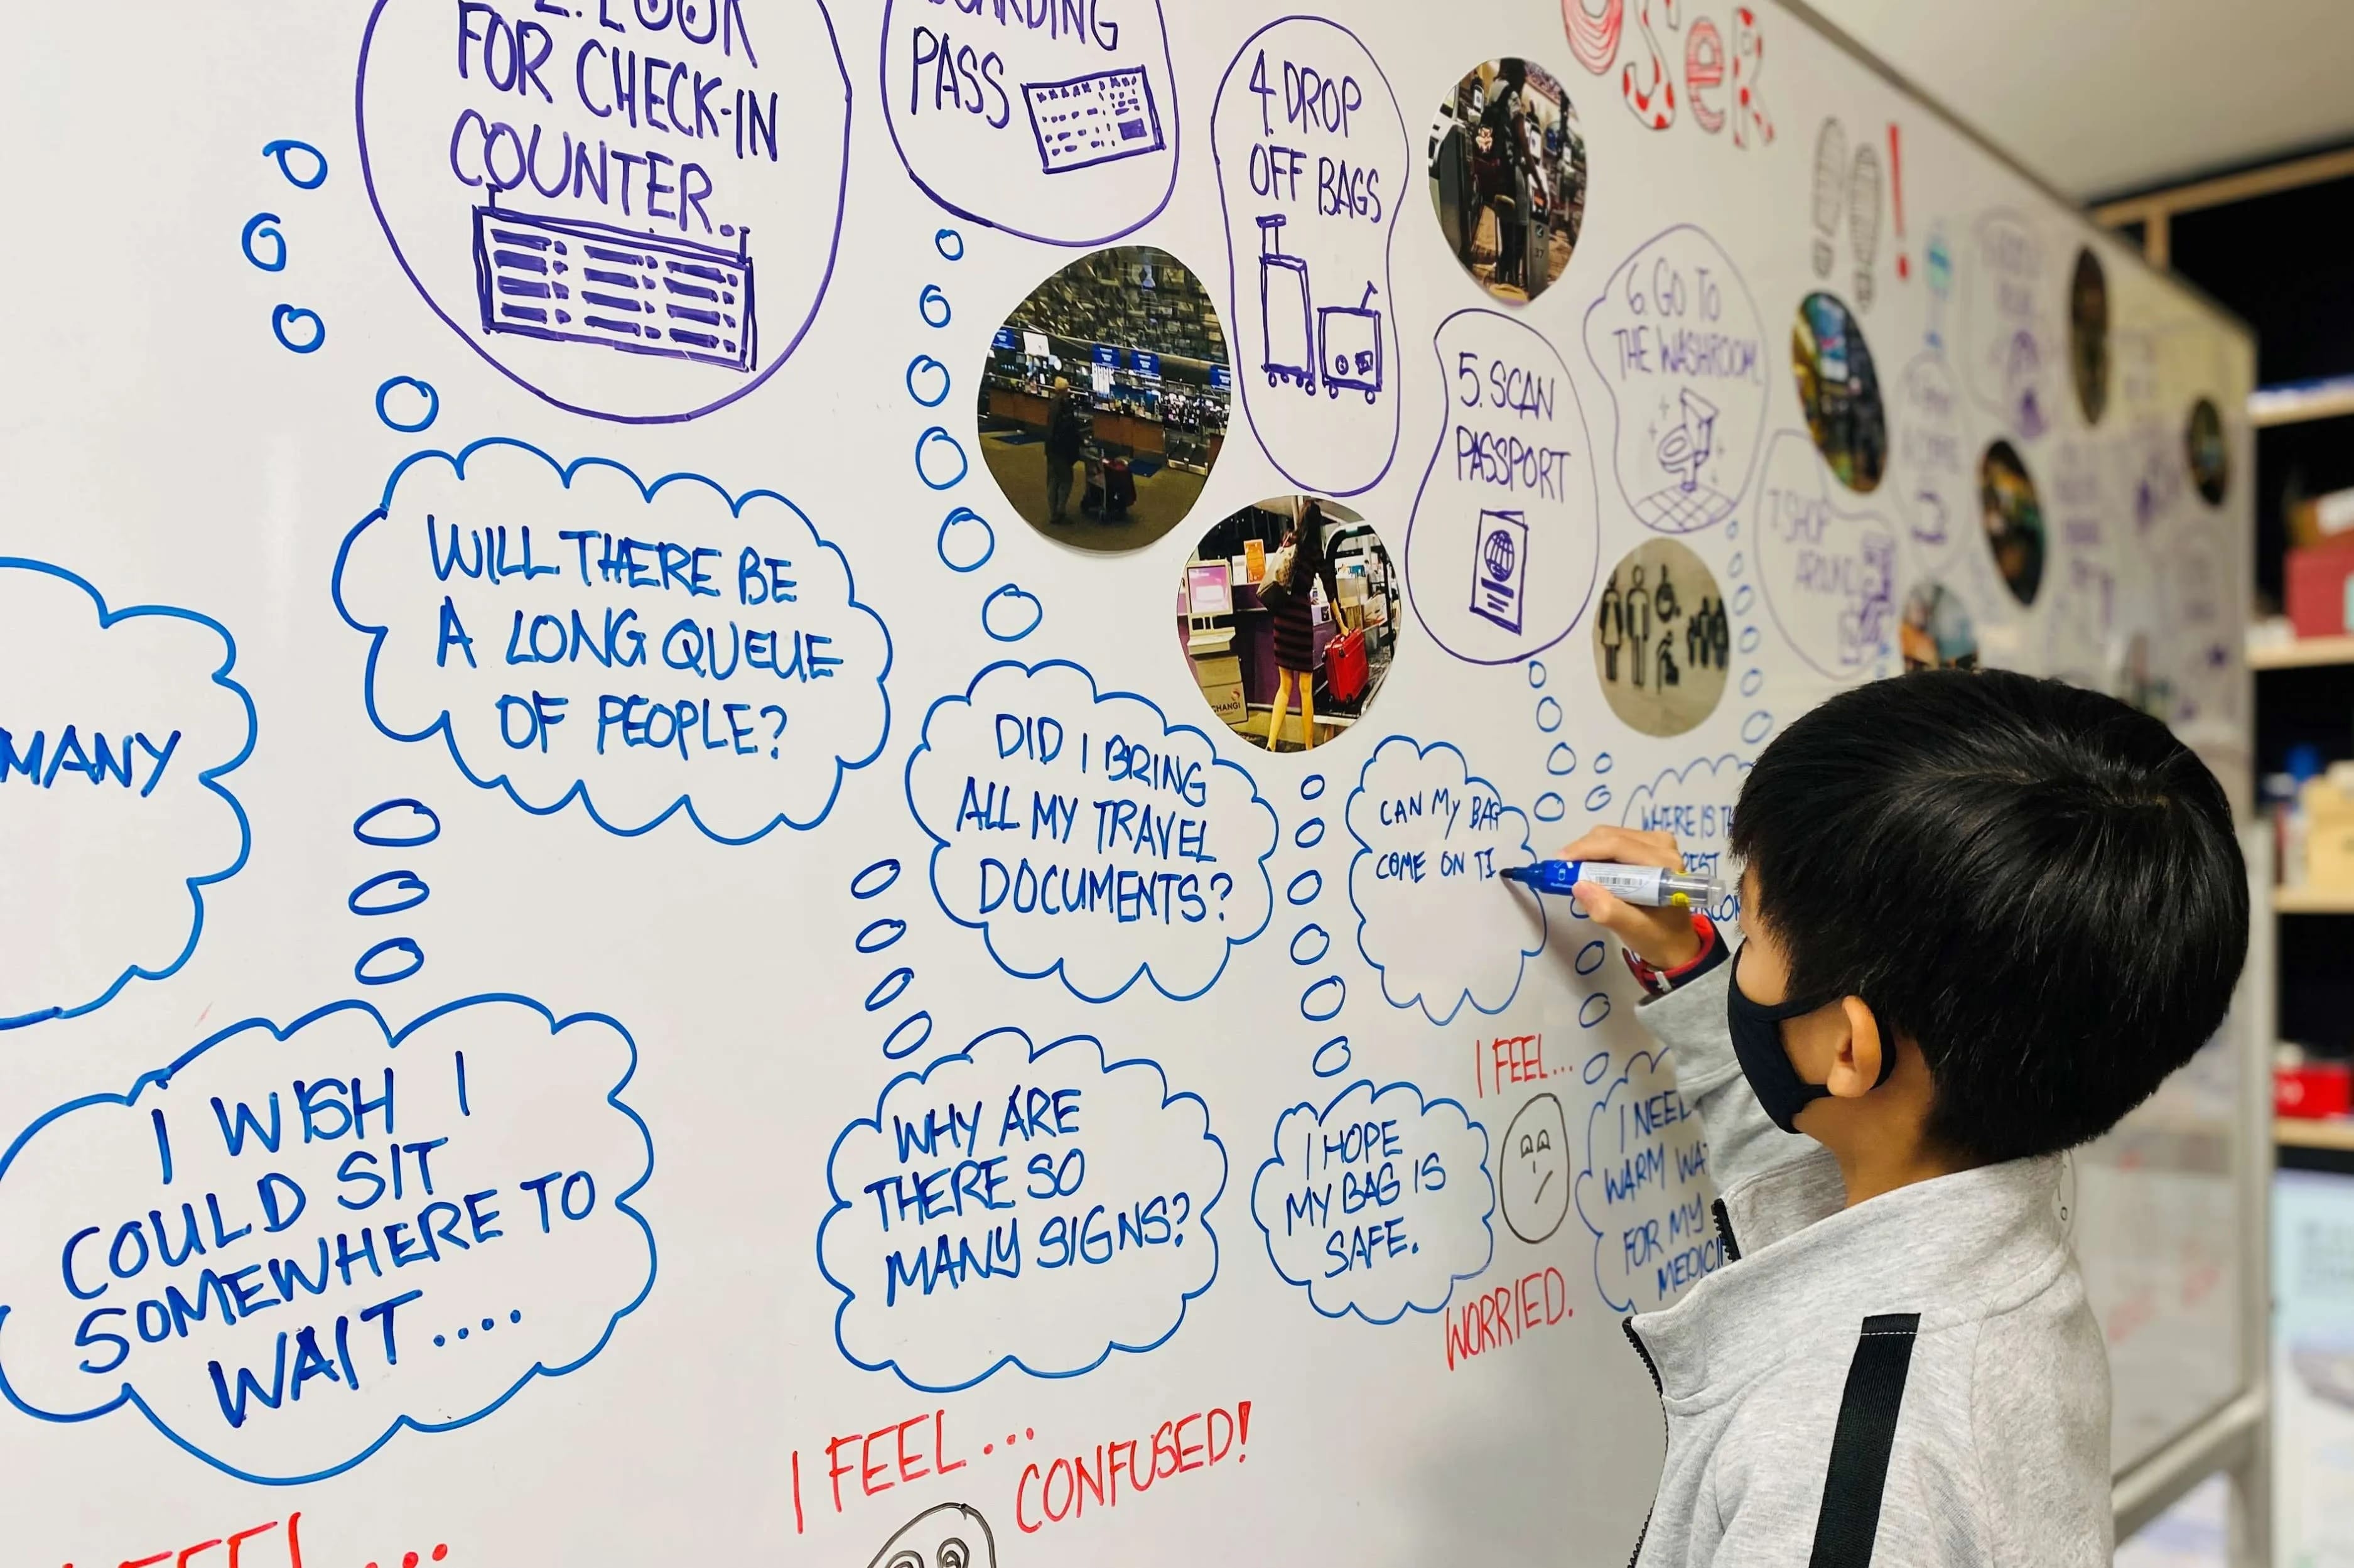 2. LOOK
FOR CHECK-IN
COUNTER..
BOARDING
PASS
4. DROP
OFF BAGS
5. SCAN
PASSPORT
6. GO TO
THE WASHROOM
7. SHOP
AROUND
USER
!
MANY
WILL THERE BE
A LONG QUEUE
OF PEOPLE?
DID I BRING
ALL MY TRAVEL
DOCUMENTS?
CAN MY BAG
COME ON TI
WHERE IS TH
I WISH I
COULD SIT
SOMEWHERE TO
WAIT....
WHY ARE
THERE SO
MANY SIGNS?
I HOPE
MY BAG IS
SAFE.
I NEED
WARM WAT
FOR MY
MEDICIN
I FEEL...
WORRIED.
I FEEL...
CONFUSED!
FEEL...
CHANGI